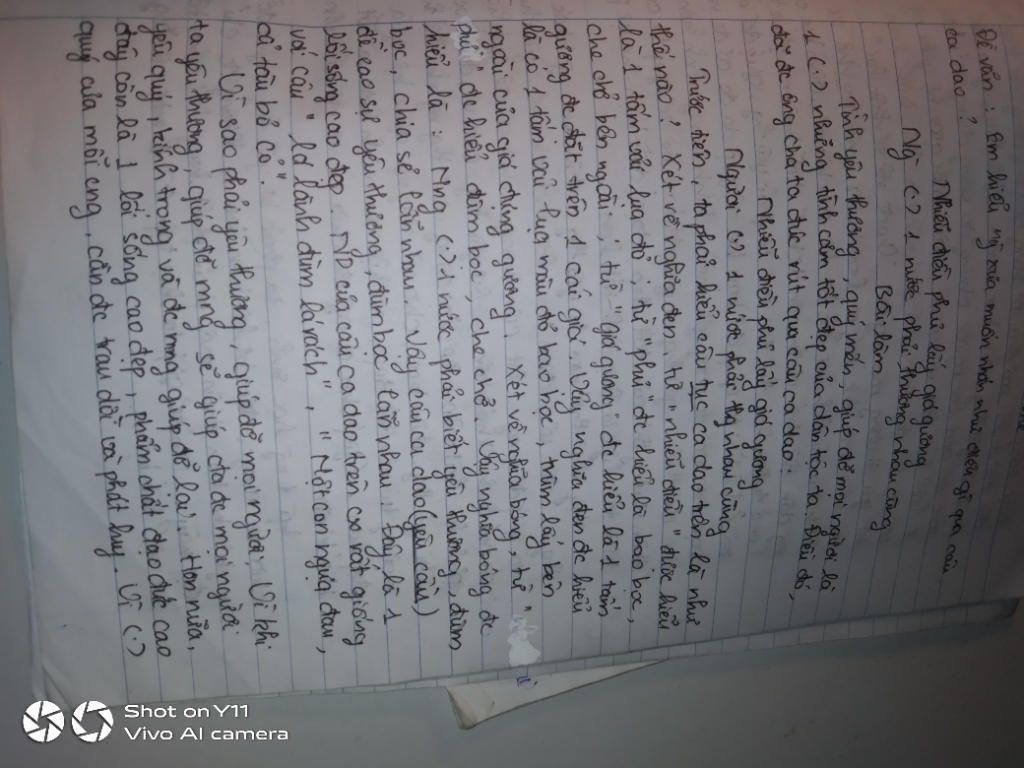 Đề văn : Em hiểu ng xưa muốn nhắn nhủ điều gì qua câu
ca dao ?
Nhiễu điều phủ lấy giá gương
Ng (.) 1 nước phải thương nhau cùng
Bài làm
Tình yêu thương, quý mến, giúp đỡ mọi người là
1 (.) những tình cảm tốt đẹp của dân tộc ta. Điều đó,
đã đc ông cha ta đúc rút qua câu ca dao:
Nhiễu điều phủ lấy giá gương
Người (.) 1 nước phải thg nhau cùng
Trước tiên, ta phải hiểu câu tục ca dao trên là như
thế nào? Xét về nghĩa đen, từ "nhiễu điều" được hiểu
là 1 tấm vải lụa đỏ; từ "phủ" đc hiểu là bao bọc,
che chở bên ngoài; từ "giá gương" đc hiểu là 1 tấm
gương đc đặt trên 1 cái giá. Vậy nghĩa đen đc hiểu
là có 1 tấm vải lụa màu đỏ bao bọc, trùm lấy bên
ngoài của giá đựng gương. Xét về nghĩa bóng, từ "
" đc hiểu đùm bọc, che chở. Vậy nghĩa bóng đc
hiểu là : Nng (.) 1 nước phải biết yêu thương, đùm
bọc, chia sẻ lẫn nhau. Vậy câu ca dao (yêu cầu)
đề cao sự yêu thương, đùm bọc lẫn nhau. Đây là 1
lối sống cao đẹp. ND của câu ca dao trên có rất giống
với câu "lá lành đùm lá rách", "Một con ngựa đau,
cả tàu bỏ cỏ".
Vì sao phải yêu thương, giúp đỡ mọi người, Vì khi
ta yêu thương, giúp đỡ mng sẽ giúp ta đc mọi người
yêu quý, kính trọng và đc mng giúp đỡ lại. Hơn nữa,
đây còn là 1 lối sống cao đẹp, phẩm chất đạo đức cao
quý của mỗi cng, cần đc trau dồi và phát huy. Vì (.)